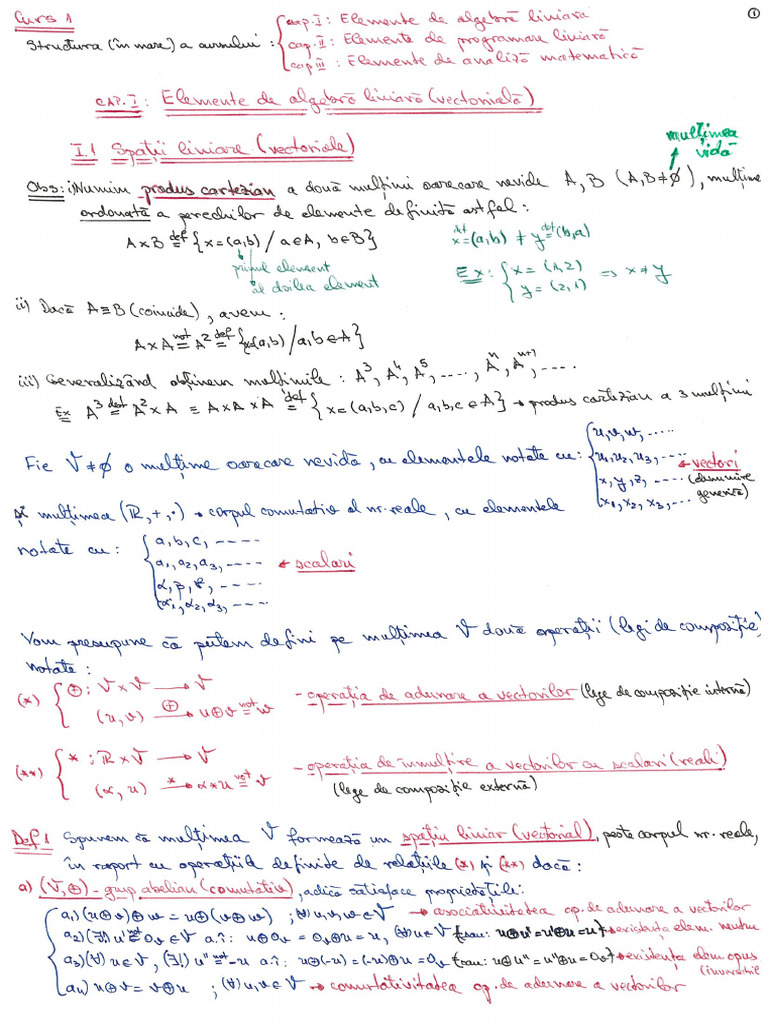 Curs 1
①
Structura (în mare) a cursului : { cap. I : Elemente de algebră liniară
cap. II : Elemente de programare liniară
cap. III : Elemente de analiză matematică
CAP. I : Elemente de algebră liniară (vectorială)
I.1 Spații liniare (vectoriale)
mulțimea vidă
Obs: i) Numim produs cartezian a două mulțimi oarecare nevide A, B (A,B≠∅), mulțime
ordonată a perechilor de elemente definită astfel:
A×B def= {x=(a,b) / a∈A, b∈B}
x not= (a,b) ≠ y not= (b,a)
primul element
al doilea element
Ex: { x = (1,2)
y = (2,1) => x≠y
ii) Dacă A≡B (coincide), avem:
A×A not= A² def= {x=(a,b) / a,b∈A}
iii) Generalizând obținem mulțimile : A³, A⁴, A⁵, ...., Aⁿ, Aⁿ⁺¹, ....
Ex A³ def= A²×A ≡ A×A×A def= {x=(a,b,c) / a,b,c∈A} → produs cartezian a 3 mulțimi
Fie V≠∅ o mulțime oarecare nevidă, cu elementele notate cu: { u,v,w, .....
u₁,u₂,u₃, ....
x,y,z, ....
x₁,x₂,x₃,...
← vectori
(denumire generică)
și mulțimea (ℝ,+,·) → corpul comutativ al nr. reale, cu elementele
notate cu: { a,b,c, ----
a₁,a₂,a₃,----
α,β,γ, ----
α₁,α₂,α₃, ----
← scalari
Vom presupune că putem defini pe mulțimea V două operații (legi de compoziție)
notate :
(*) { ⊕ : V×V → V
(u,v) ⊕→ u⊕v not= w
- operația de adunare a vectorilor (lege de compoziție internă)
(**) { * : ℝ×V → V
(α,u) *→ α*u not= v
- operația de înmulțire a vectorilor cu scalari (reali)
(lege de compoziție externă)
Def 1 Spunem că mulțimea V formează un spațiu liniar (vectorial), peste corpul nr. reale,
în raport cu operațiile definite de relațiile (*) și (**) dacă:
a) (V,⊕) - grup abelian (comutativ), adică satisface proprietățile:
a₁) (u⊕v)⊕w = u⊕(v⊕w) ; (∀) u,v,w∈V → asociativitatea op. de adunare a vectorilor
a₂) (∃!) u' not= 0ᵥ∈V a.î: u⊕0ᵥ = 0ᵥ⊕u = u, (∀)u∈V {sau: u⊕u'=u'⊕u=u} → existența elem. neutru
a₃) (∀) u∈V, (∃!) u'' not= -u a.î: u⊕(-u) = (-u)⊕u = 0ᵥ {sau: u⊕u''=u''⊕u=0ᵥ} → existența elem. opus
(inversabil
a₄) u⊕v = v⊕u ; (∀) u,v∈V → comutativitatea op. de adunare a vectorilor